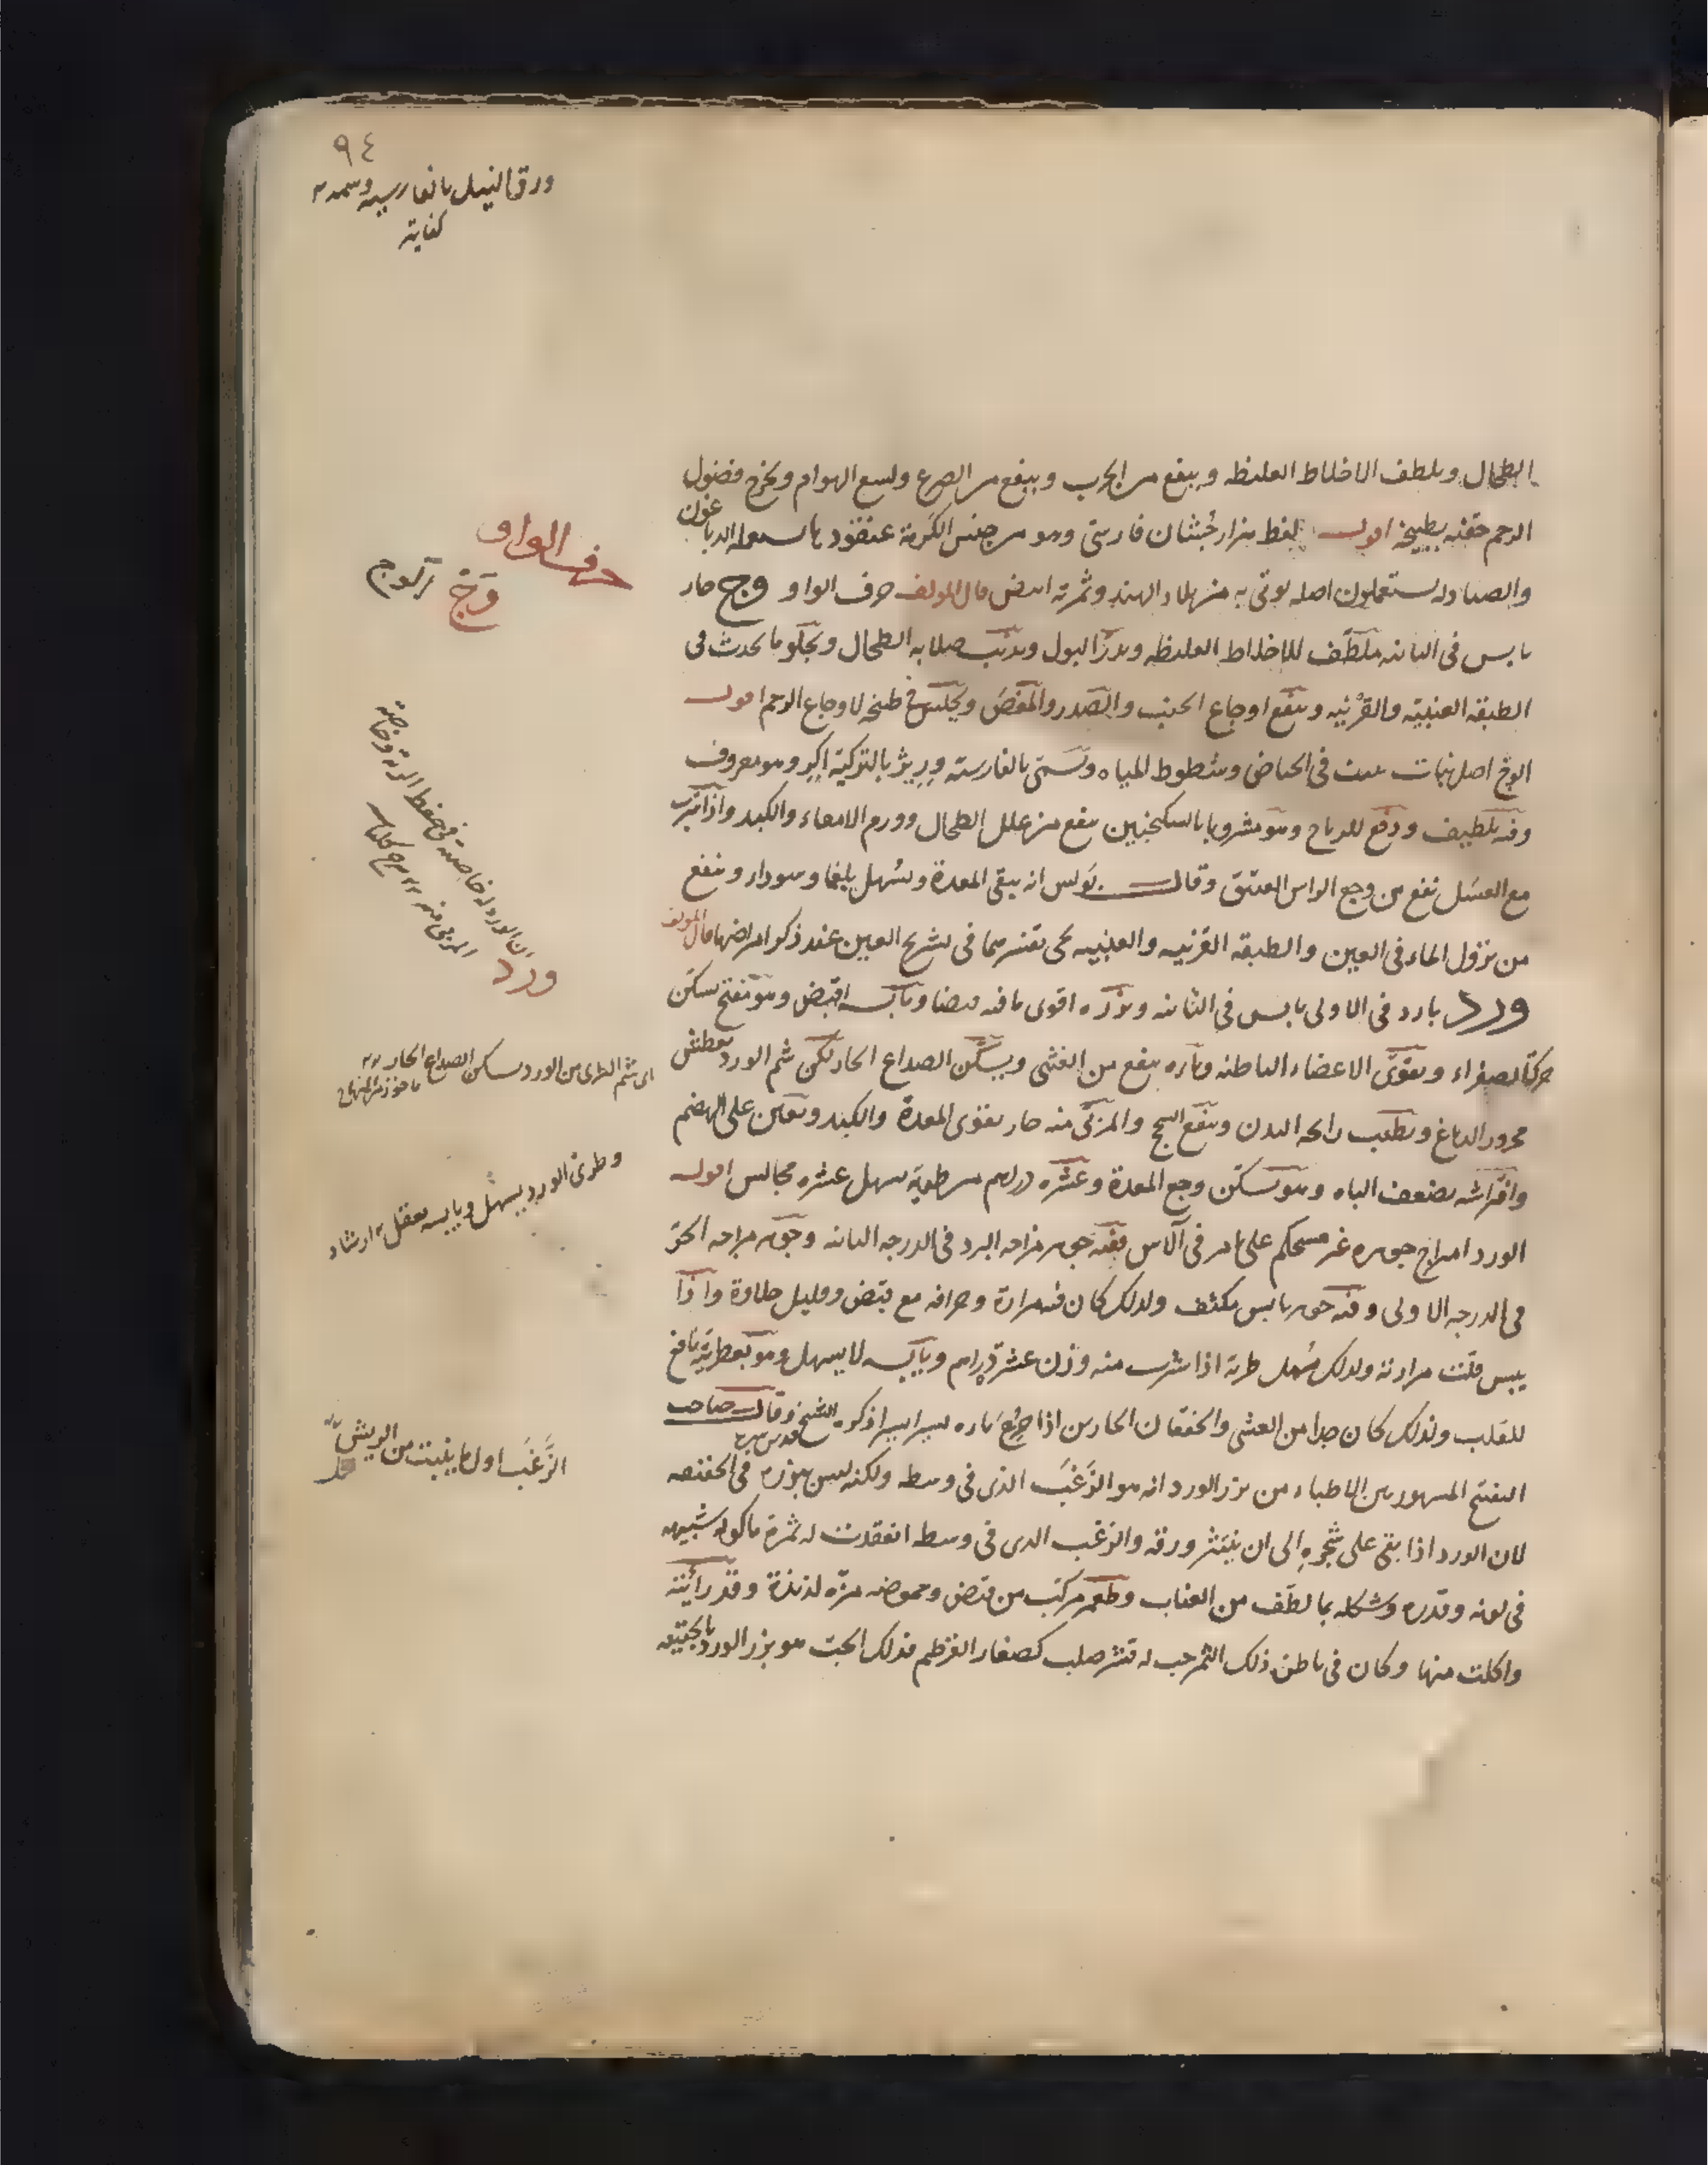 ٩٤
ورق النيل بالفارسية وسمه
كفاية
الطحال ويلطف الاخلاط الغليظه وينفع من الجرب وينفع من الصرع ولسع الهوام ويخرج فضول
الرحم حقنه بطبيخه اقول لفظ هزارجشان فارسي وهو من جنس الكرمة عنقود يا يستعمله الدباغون
والصيادله يستعملون اصله يوتى به من بلاد الهند وثمرته ابيض قال المولف حرف الواو وج حار
يابس في الثانيه ملطف للاخلاط الغليظه ويدر البول ويذيب صلابه الطحال ويجلو ما يحدث في
الطبقه العنبية والقرنيه وينفع اوجاع الجنب والصدر والمغص ويجلس في طبخه لاوجاع الرحم اقول
الوج اصل نبات ينبت في الحياض وشطوط المياه وتسمى بالفارسية وريژ بالتركية اكر وهو معروف
وفيه تلطيف ودفع للرياح وهو مشروبا بالسكنجبين ينفع من علل الطحال وورم الامعاء والكبد واذا شرب
مع العسل نفع من وجع الراس العتيق وقال بولس انه ينقي المعدة ويسهل بلغما وسوداء وينفع
من نزول الماء في العين والطبقه القرنيه والعنبيه يجي تفسيرهما في تشريح العين عند ذكر امراضها قال المولف
ورد بارد في الاولى يابس في الثانيه وبزره اقوى ما فيه قبضا ويابسه اقبض وهو مفتح يسكن
حركة الصفراء ويقوي الاعضاء الباطنه وماؤه ينفع من الغشي ويسكن الصداع الحار لكن شم الورد يعطش
محرور الدماغ ويطيب رائحه البدن وينفع السحج والمربى منه حار يقوى المعدة والكبد ويعين على الهضم
وافتراشه يضعف الباه وهو يسكن وجع المعدة وعشره دراهم من طريه يسهل عشره مجالس اقول
الورد امزاج جوهره غير مستحكم على ما مر في الآس ففيه جوهر مزاجه البرد في الدرجه الثانيه وجوهر مزاجه الحر
في الدرجه الاولى وفيه جوهر يابس مكثف ولذلك كان فيه مرارة وحرافه مع قبض وقليل حلاوة واذا
يبس قلت مرارته ولذلك يسهل طريه اذا شرب منه وزن عشرة دراهم ويابسه لا يسهل وهو بعطريته نافع
للقلب ولذلك كان جيدا من الغشى والخفقان الحارين اذا جرع ماره يسيرا يسيرا ذكره الشيخ قدس سره وقال صاحب
التفتيح المشهور بين الاطباء من بزر الورد انه هو الزغب الذى في وسطه ولكنه ليس ببزره في الحقيقه
لان الورد اذا بقي على شجره الى ان ينتثر ورقه والزغب الذى في وسطه انعقدت له ثمرة ماكوله شبيهه
في لونه وقدره وشكله بما لطف من العناب وطعم مركب من قبض وحموضه مزه لذيذة وقد رايته
واكلت منها وكان في باطن ذلك الثمر حب له قشر صلب كصغار القرطم فذلك الحب هو بزر الورد بالحقيقه
حرف الواو
وج
ان الورد له خاصية في حفظ الرية وخاصة
المربى منه
ورد
اى شم الطرى من الورد يسكن الصداع الحار
ماخوذ من المنهاج
وطرى الورد يسهل ويابسه يعقل ارشاد
الزغب اول ما ينبت من الريش